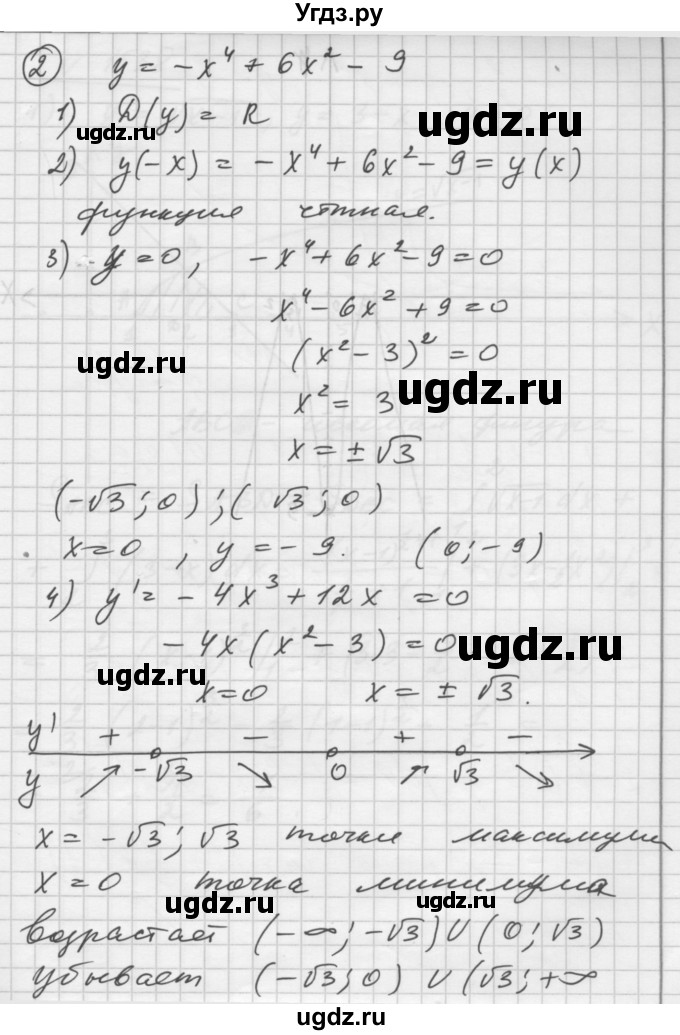 Угдз.ру
② y = -x⁴ + 6x² - 9
1) D(y) = R
ugdz.ru
ugdz.ru
2) y(-x) = -x⁴ + 6x² - 9 = y(x)
функция чётная.
3) y = 0, -x⁴ + 6x² - 9 = 0
x⁴ - 6x² + 9 = 0
(x² - 3)² = 0
ugdz.ru
ugdz.ru
x² = 3
x = ± √3
(-√3; 0); (√3; 0)
x = 0, y = -9. (0; -9)
4) y' = -4x³ + 12x = 0
-4x(x² - 3) = 0
ugdz.ru
x = 0 x = ± √3.
y' + - + -
y ↗ -√3 ↘ 0 ↗ √3 ↘
ugdz.ru
x = -√3; √3 точки максимума
x = 0 точка минимума
ugdz.ru
ugdz.ru
возрастает (-∞; -√3) U (0; √3)
убывает (-√3; 0) U (√3; +∞